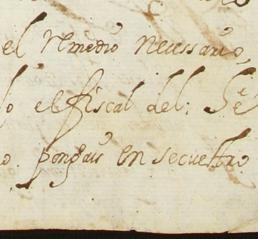 el Remedio necessario,
lo el fiscal del. S.e
o pongais en secuestro